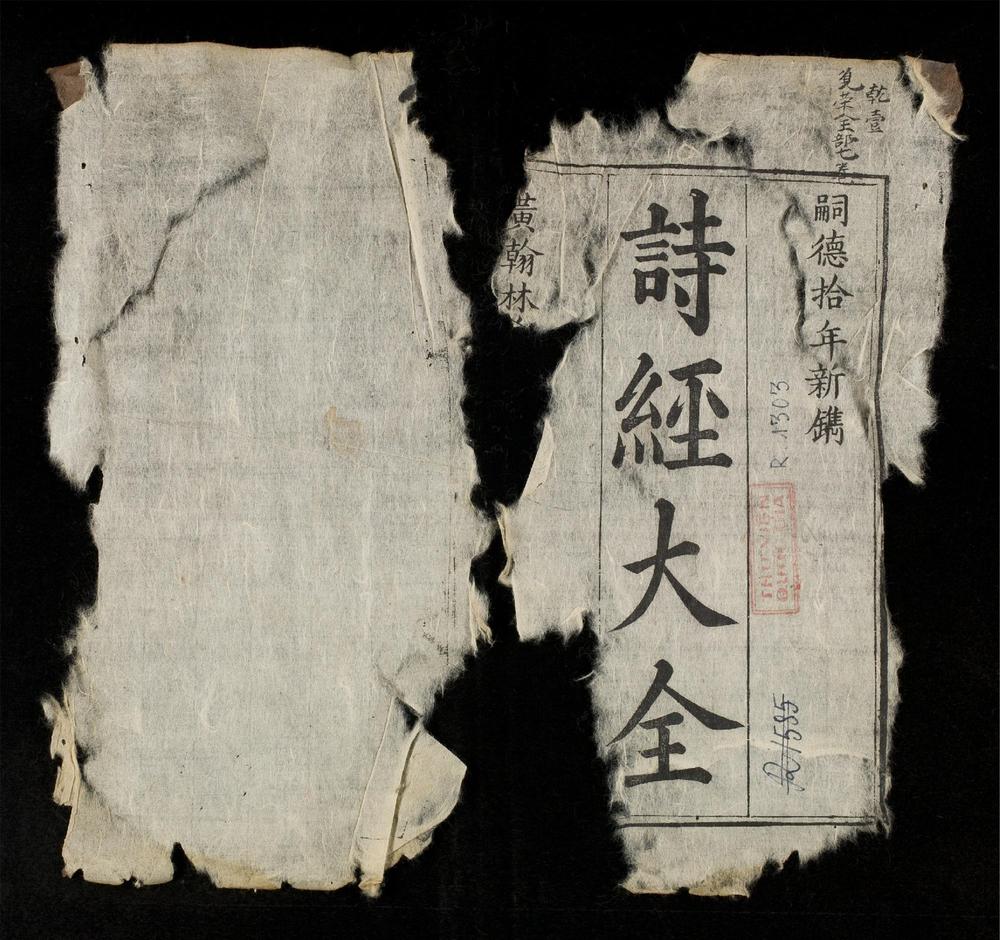 乾壹
全部七卷
嗣德拾年新鐫
詩經大全
黃翰林
R.1303
THƯ VIỆN
QUỐC GIA
R/1585